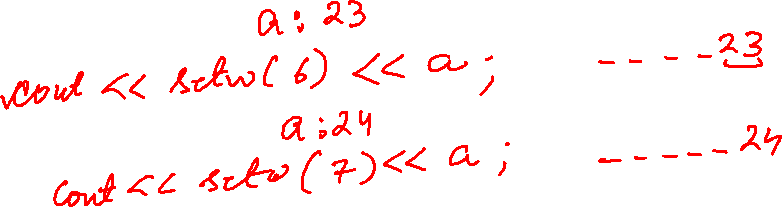 a: 23
cout << setw(6) << a; ----23
a:24
cout << setw(7)<< a; -----24